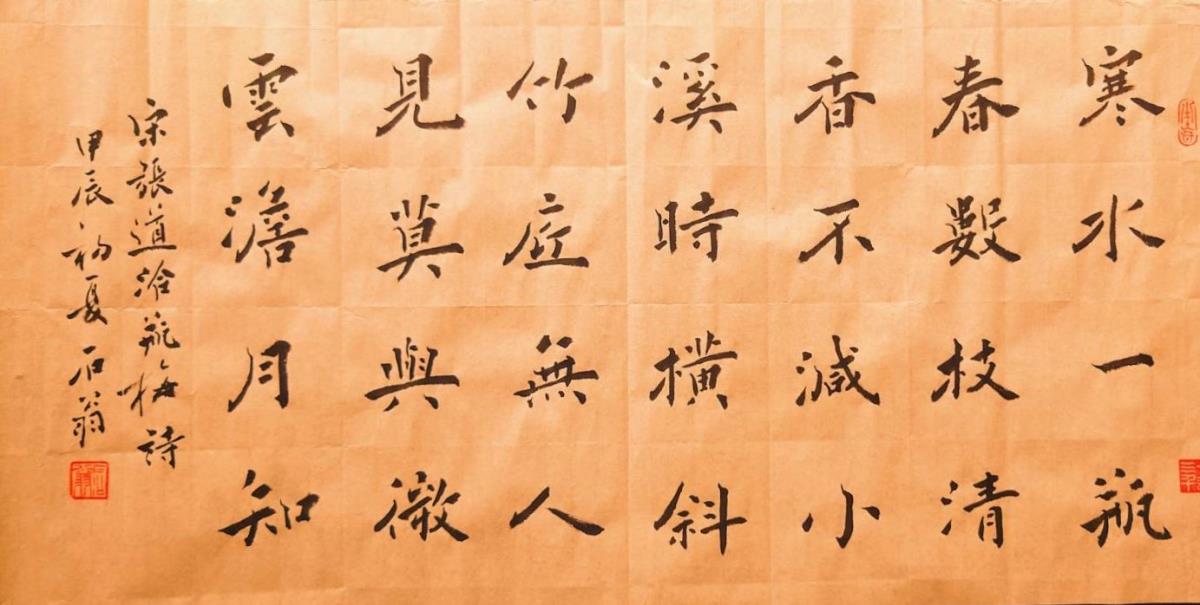 寒水一瓶
春數枝清
香不減小
溪時橫斜
竹底無人
見莫與微
雲澹月知
宋張道洽瓶梅詩
甲辰初夏石翁